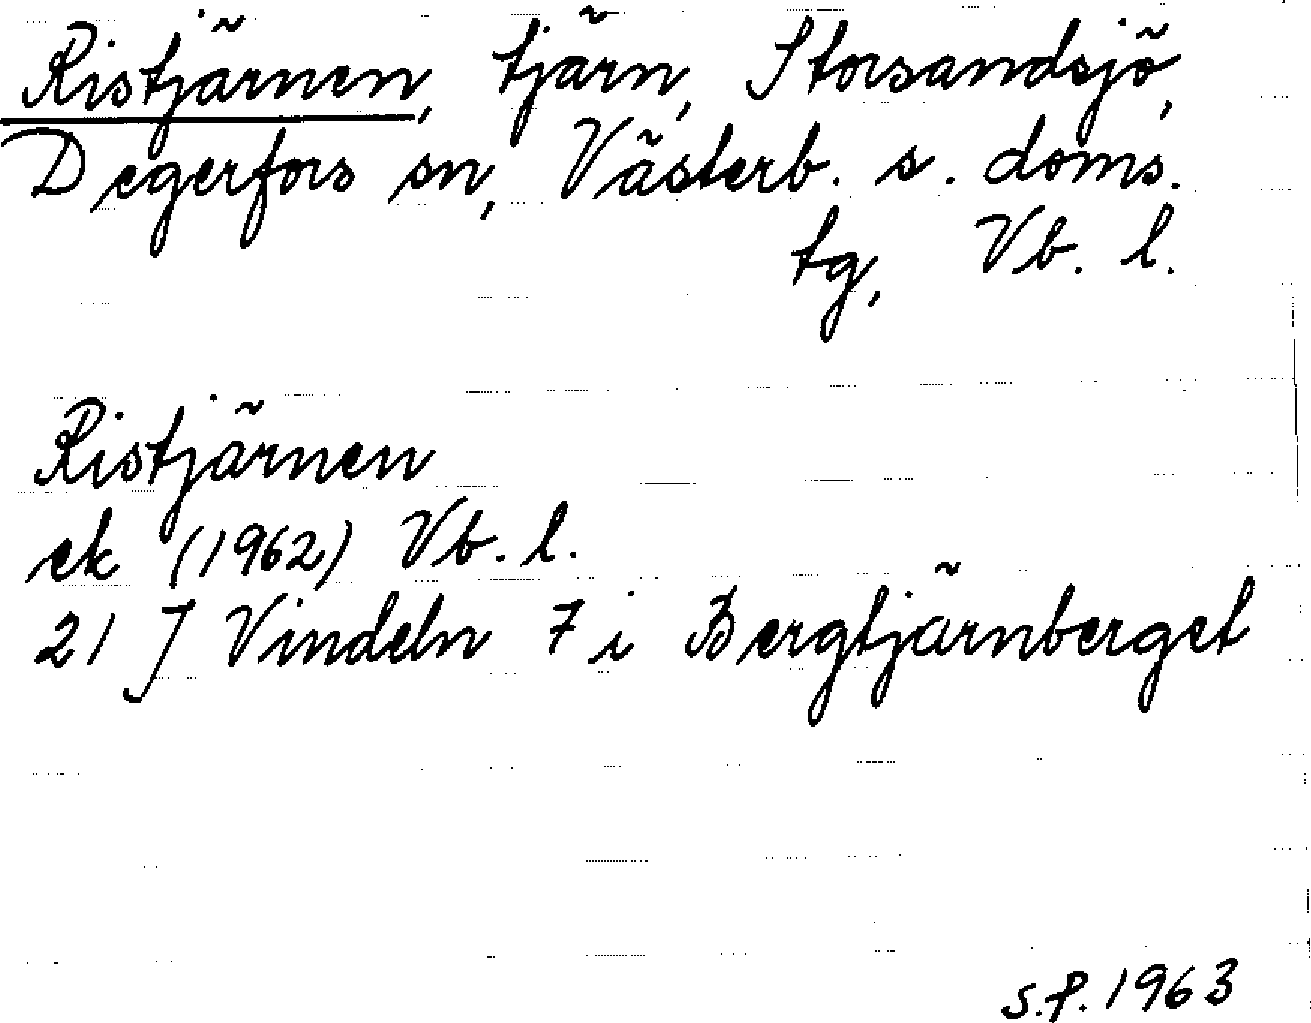 Ristjärnen, tjärn, Storsandsjö,
Degerfors sn, Västerb. s. doms.
tg, Vb. l.
Ristjärnen
ek (1962) Vb. l.
21 J Vindeln 7 i Bergtjärnberget
S.P. 1963